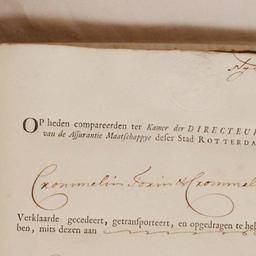 OP heden compareerden ter Kamer der DIRECTEUR
van de Assurantie Maatschappye deser Stad ROTTERDA
Crommelin Toxin & Crommel
Verklaarde gecedeert, getransporteert, en opgedragen te hel
ben, mits dezen aan